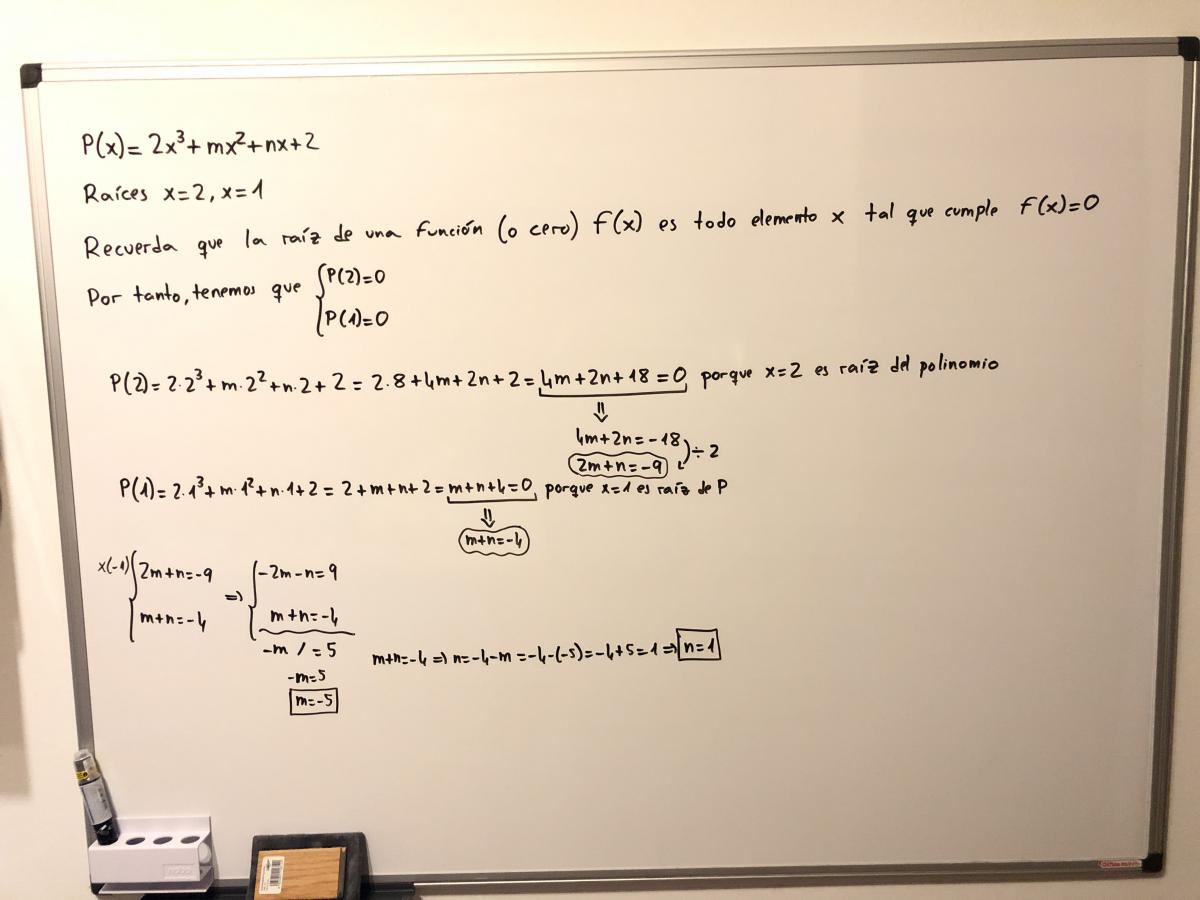 P(x)= 2x³+mx²+nx+2
Raíces x=2, x=1
Recuerda que la raíz de una función (o cero) f(x) es todo elemento x tal que cumple f(x)=0
Por tanto, tenemos que { P(2)=0
P(1)=0
P(2)= 2·2³+m·2²+n·2+2 = 2·8+4m+2n+2 = 4m+2n+18=0 porque x=2 es raíz del polinomio
⇓
4m+2n=-18
2m+n=-9 ) ÷2
P(1)= 2·1³+m·1²+n·1+2 = 2+m+n+2 = m+n+4=0 porque x=1 es raíz de P
⇓
m+n=-4
x(-1) { 2m+n=-9 ⇒ { -2m-n=9
m+n=-4 m+n=-4
-m / = 5
m+n=-4 ⇒ n=-4-m =-4-(-5)=-4+5=1 ⇒ n=1
-m=5
m=-5